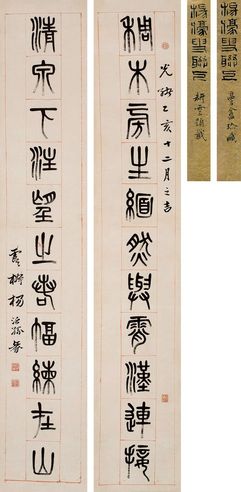 楊濠叟聯
珍藏
楊濠叟聯
耕雲
光緒乙亥十二月之吉
稠木旁生緬然與霄漢連接
清泉下注望之若幅練在山
楊沂孫篆